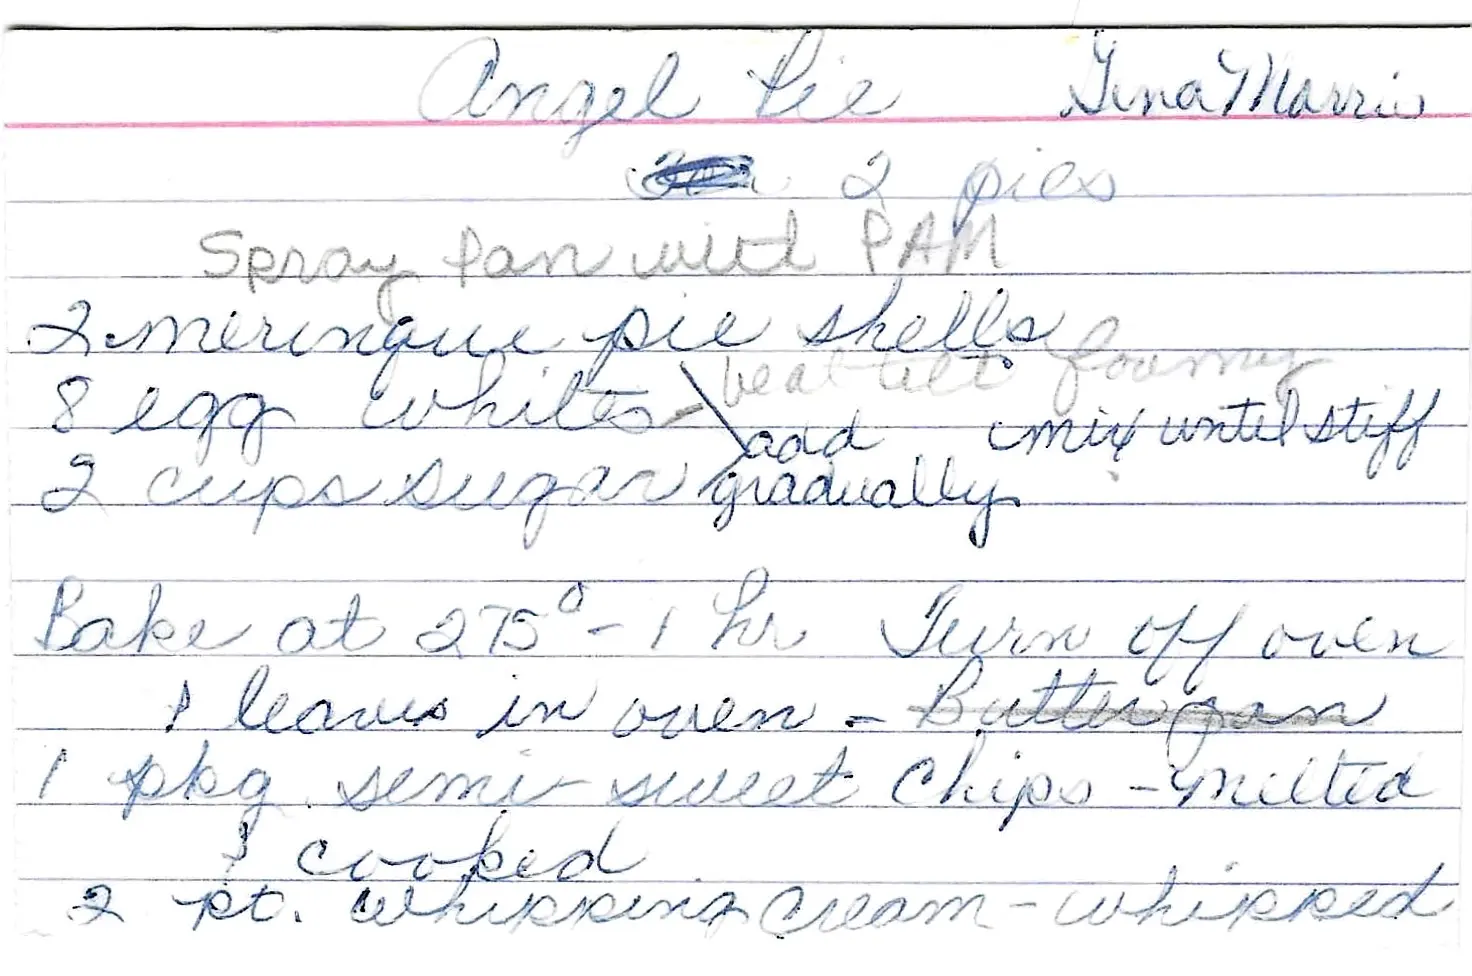 Angel Pie Gina Marrie
2 pies
Spray pan with PAM
2 meringue pie shells
8 egg whites - beat till foamy
add mix until stiff
2 cups sugar gradually
Bake at 275° - 1 hr Turn off oven
& leaves in oven - Butter pan
1 pkg semi-sweet chips - melted
& cooked
2 pt. whipping cream - whipped